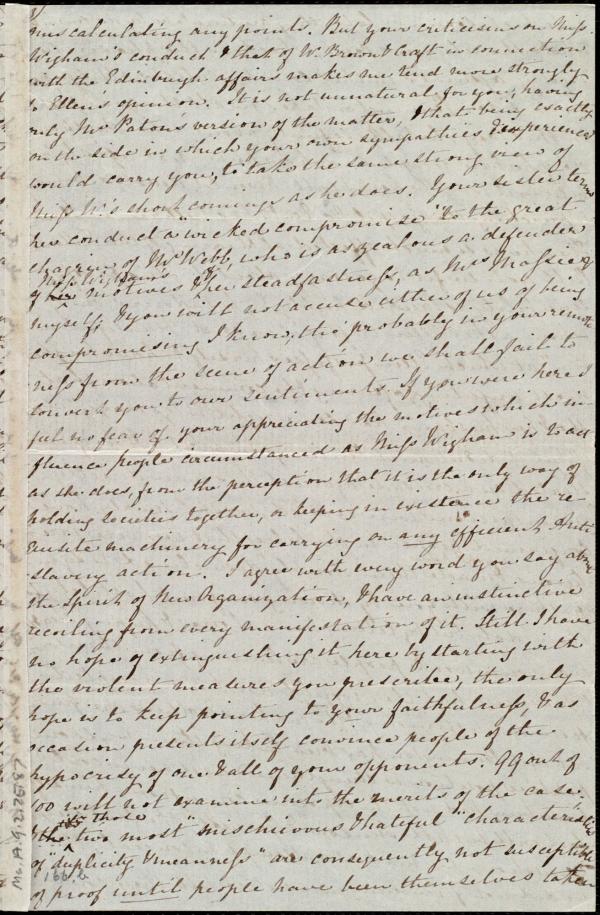 miscalculating any points. But your criticisms on Miss
Wigham's conduct & that of W. Brown & Craft in connection
with the Edinburgh affairs makes me tend more strongly
to Ellen's opinion. It is not unnatural for you, having
only Mr Paton's version of the matter, & that being exactly
on the side in which your own sympathies & experience
would carry you, to take the same strong view of
Miss W's shortcomings as he does. Your sister terms
her conduct a "wicked compromise" to the great
chagrin of Mr Webb, who is as zealous a defender
Miss Wigham's of
of her motives & her steadfastness, as Mrs Massie &
myself; & you will not accuse either of us of being
compromising I know, tho' probably in your remote
ness from the scene of action we shall fail to
convert you to our sentiments. If you were here I
feel no fear of your appreciating the motives which in
fluence people circumstanced as Miss Wigham is to act
as she does, from the perception that it is the only way of
holding societies together, or keeping in existence the re
quisite machinery for carrying on any efficient Anti
slavery action. I agree with every word you say about
the Spirit of New Organization, & have an instinctive
recoiling from every manifestation of it. Still I have
no hope of extinguishing it here by starting with
the violent measures you prescribe, the only
hope is to keep pointing to your faithfulness, & as
occasion presents itself convince people of the
hypocrisy of one & all of your opponents. 99 out of
100 will not examine into the merits of the case.
those
& the two most "mischievous & hateful" characteristics
of "duplicity & meanness" are consequently not susceptible
of proof until people have been themselves taken
Ms. A. 9. 2. 26. 87
166. b